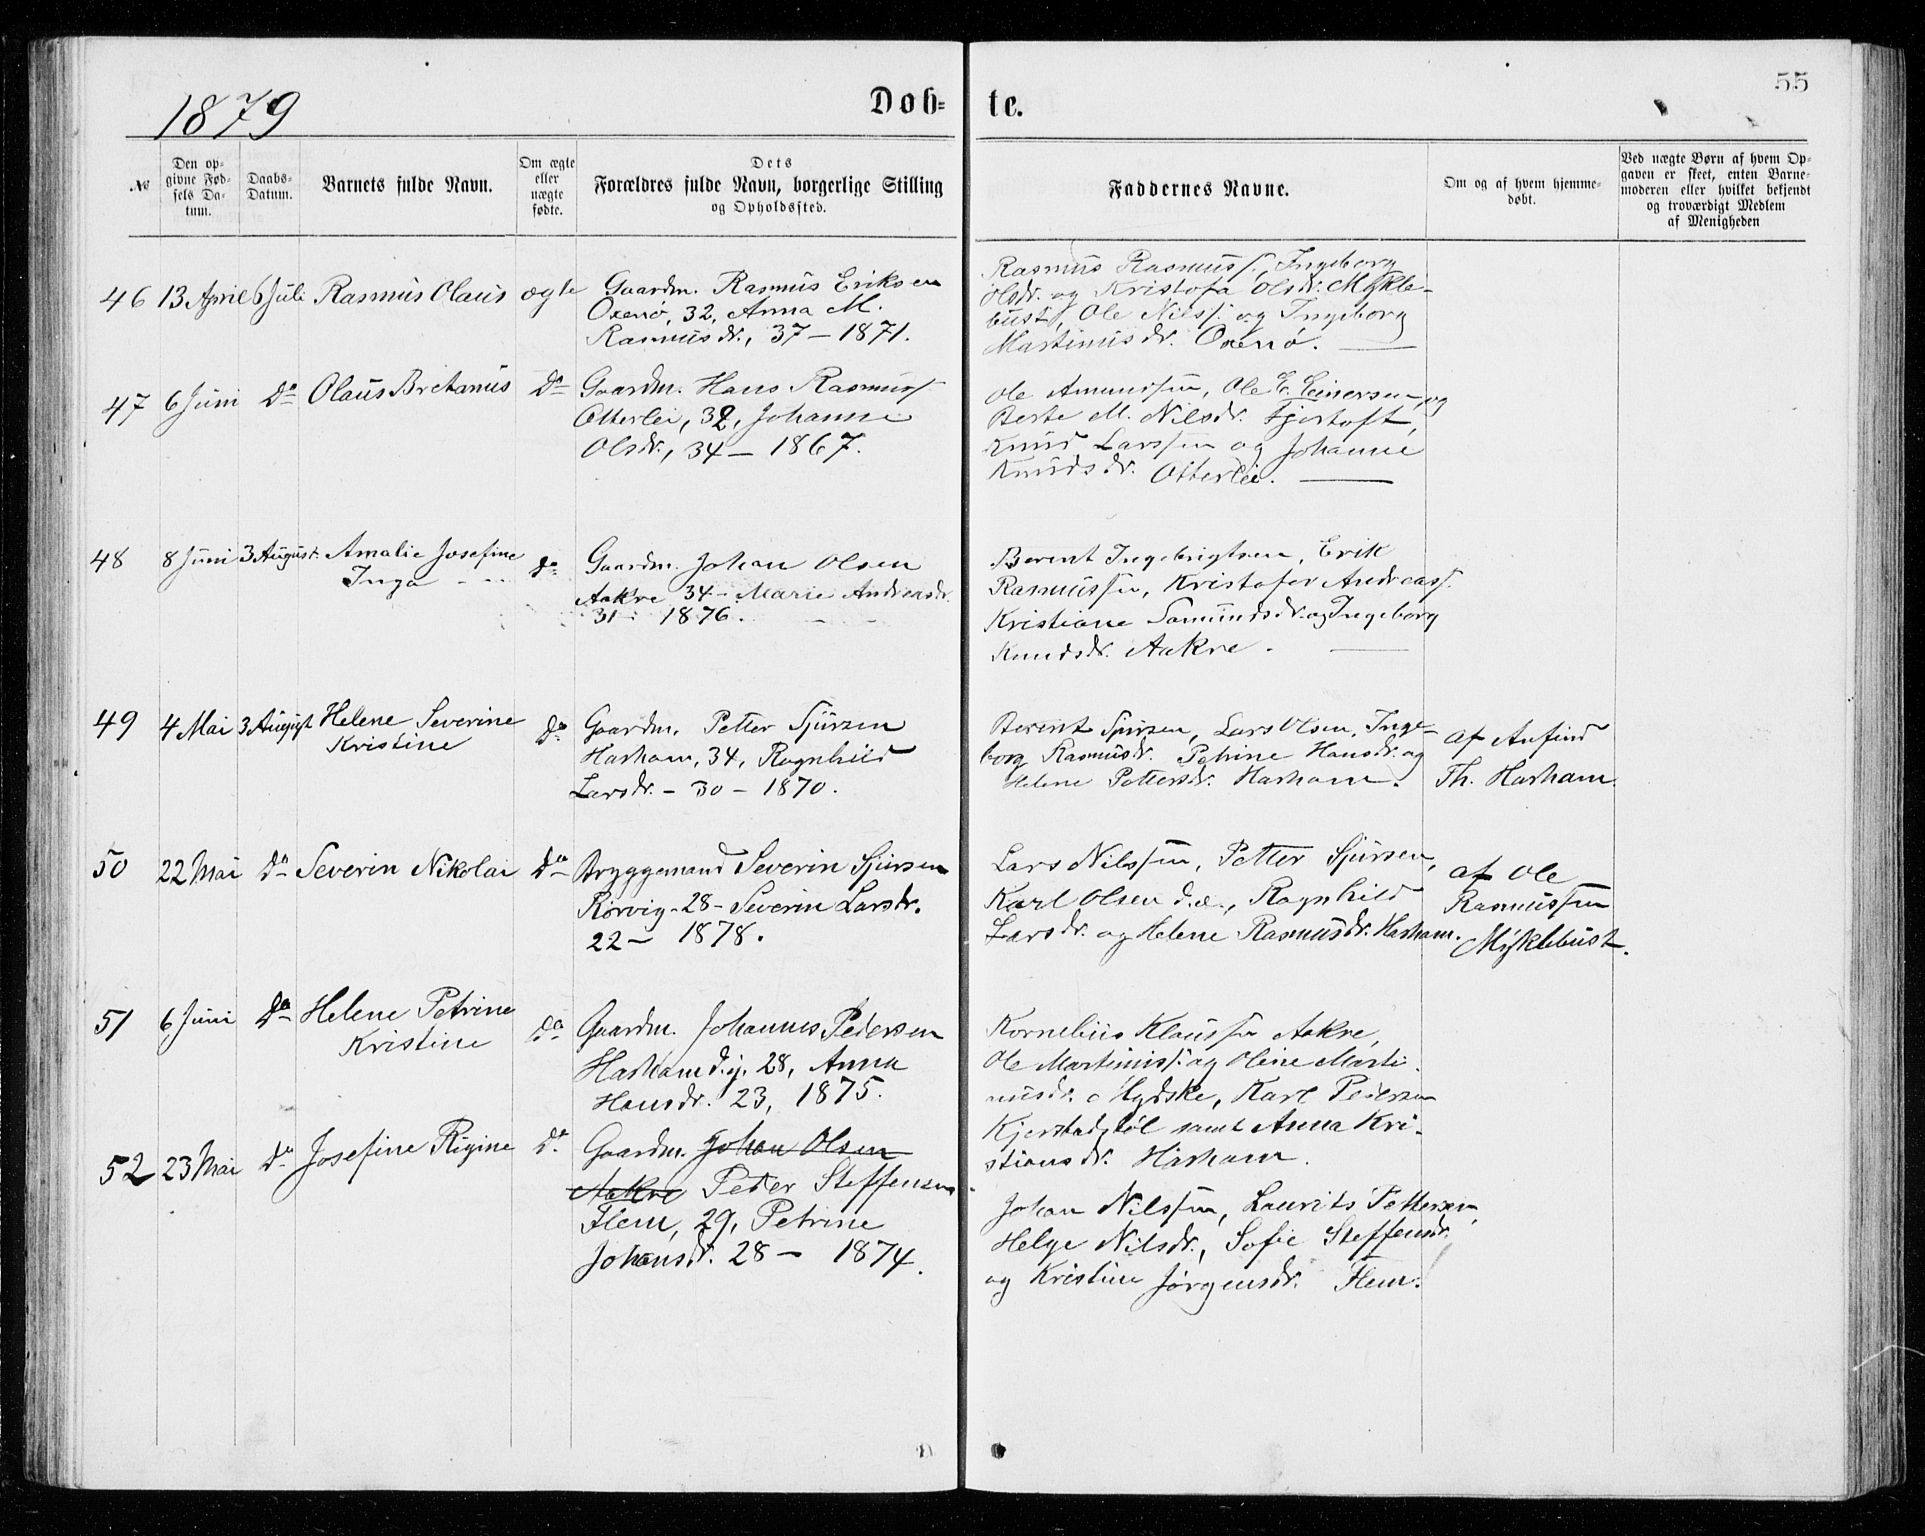 1879
Døb-
te.
55
№
Den op-
givne Fød-
sels Da-
tum.
Daabs-
Datum.
Barnets fulde Navn.
Om ægte
eller
uægte
fødte.
Dets
Forældres fulde Navn, borgerlige Stilling
og Opholdssted.
Faddernes Navne.
Om og af hvem hjemme-
døbt.
Ved uægte Børn af hvem Op-
gaven er skeet, enten Barne-
moderen eller hvilket bekjendt
og troværdigt Medlem
af Menigheden
46 13 April 6 Juli Rasmus Olaus ægte Gaardm. Rasmus Eriksen
Oxenø, 32, Anna M.
Rasmusdr., 37 – 1871.
Rasmus Rasmuss. Ingeborg
Olsdr. og Kristofa Olsdr. Mykle-
bust, Ole Nilss. og Ingeborg
Martinusdr. Oxenø. —
47 6 Juni Do Olaus Bretanus Do Gaardm. Hans Rasmuss.
Otterlei, 32, Johanne
Olsdr., 34 – 1867.
Ole Amundsen, Ole E. Einersen, og
Berte M. Nilsdr. Fjertoft,
Knud Larssen og Johanne
Knudsdr. Otterlei. —
48 8 Juni 3 August. Amalie Josefine
Inga Do Gaardm. Johan Olsen
Aakre 34 – Marie Andreasdr.
31 – 1876.
Berent Ingebrigtsen, Erik
Rasmussen, Kristofer Andreass.
Kristiane Samundsdr. og Ingeborg
Knudsdr. Aakre. —
49 4 Mai 3 August Helene Severine
Kristine Do Gaardm. Petter Sjursen
Harham, 34, Ragnhild
Larsdr. – 30 – 1870.
Berent Sjursen, Lars Olsen, Inge-
borg Rasmusdr. Petrine Hansdr. og
Helene Pettersdr. Harham.
af Anfind
Th. Harham.
50 22 Mai Do Severin Nikolai Do Bryggemand Severin Sjursen
Rørvig – 28 – Severin Larsdr.
22 – 1878.
Lars Nilssen, Petter Sjursen,
Karl Olsen d.æ., Ragnhild
Larsdr. og Helene Rasmusdr. Harham.
af Ole
Rasmussen
Myklebust.
51 6 Juni Do Helene Petrine
Kristine Do Gaardm. Johannes Pedersen
Harham d.y. 28, Anna
Hansdr. 23, 1875.
Kornelius Klaussen Aakre,
Ole Martinuss. og Oline Marti-
nusdr. Hydske, Karl Pedersen
Kjerstadstøl samt Anna Kri-
stiansdr. Harham.
52 23 Mai Do Josefine Rigine Do Gaardm. Johan Olsen
Aakre Peder Steffensen
Flem, 29, Petrine
Johansdr. 28 – 1874.
Johan Nilssen, Laurits Pettersen,
Helge Nilsdr., Sofie Steffensdr.
og Kristine Jørgensdr. Flem.